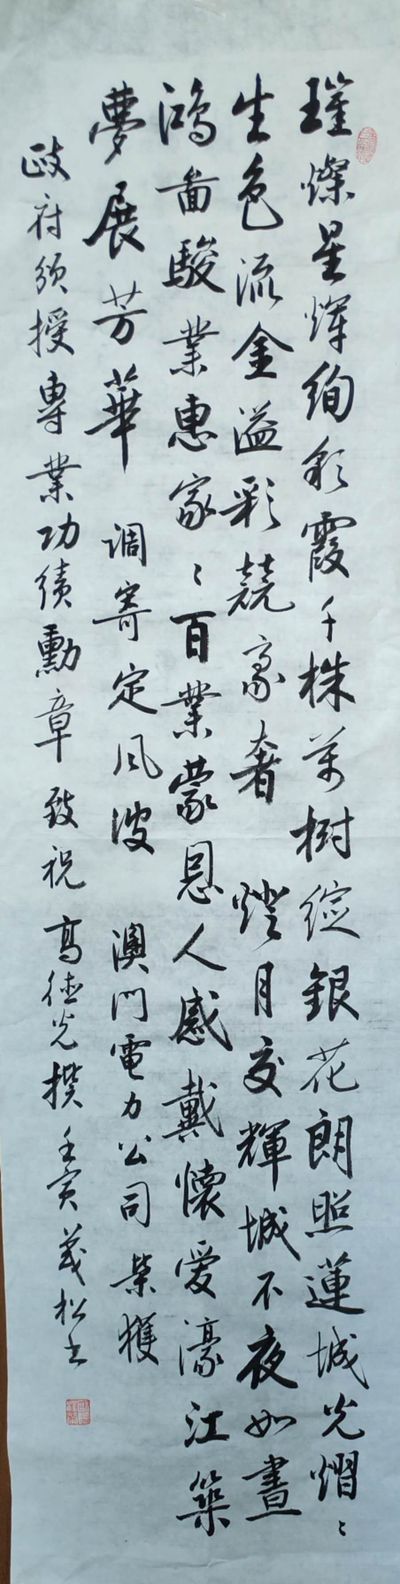 璀燦星輝絢彩霞千株萬樹綻銀花朗照蓮城光熠〻
生色流金溢彩競豪奢 燈月交輝城不夜如晝
鴻圖駿業惠家〻百業蒙恩人感戴懷愛濠江築
夢展芳華 調寄定風波 澳門電力公司榮獲
政府頒授專業功績勳章致祝 高德光撰壬寅義松書